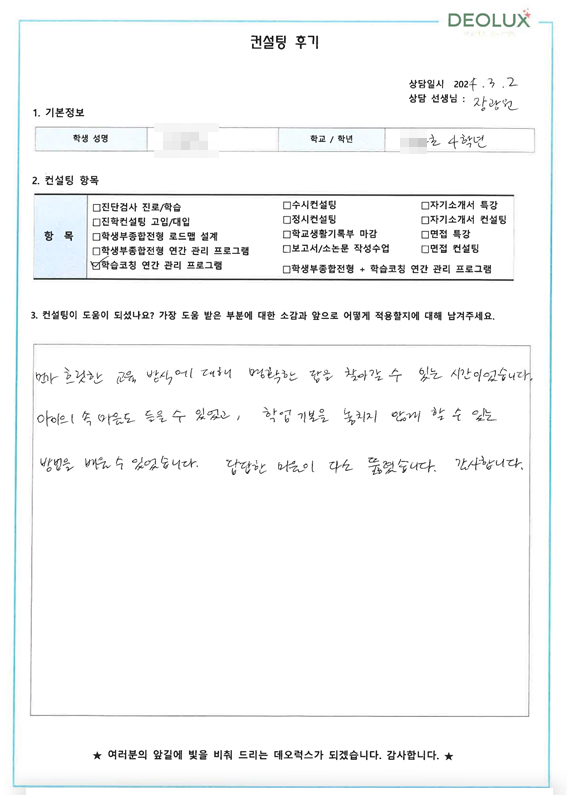 DEOLUX
컨설팅 후기
상담일시 2024.3.2
상담 선생님 : 장광원
1. 기본정보
학생 성명 학교 / 학년 초 4학년
2. 컨설팅 항목
항 목
□진단검사 진로/학습 □수시컨설팅 □자기소개서 특강
□진학컨설팅 고입/대입 □정시컨설팅 □자기소개서 컨설팅
□학생부종합전형 로드맵 설계 □학교생활기록부 마감 □면접 특강
□학생부종합전형 연간 관리 프로그램 □보고서/소논문 작성수업 □면접 컨설팅
☑학습코칭 연간 관리 프로그램 □학생부종합전형 + 학습코칭 연간 관리 프로그램
3. 컨설팅이 도움이 되셨나요? 가장 도움 받은 부분에 대한 소감과 앞으로 어떻게 적용할지에 대해 남겨주세요.
뭔가 흐릿한 교육 방식에 대해 명확한 답을 찾아갈 수 있는 시간이었습니다.
아이의 속 마음도 들을 수 있었고, 학업 기본을 놓치지 않게 할 수 있는
방법을 배울 수 있었습니다. 답답한 마음이 다소 뚫렸습니다. 감사합니다.
★ 여러분의 앞길에 빛을 비춰 드리는 데오럭스가 되겠습니다. 감사합니다. ★